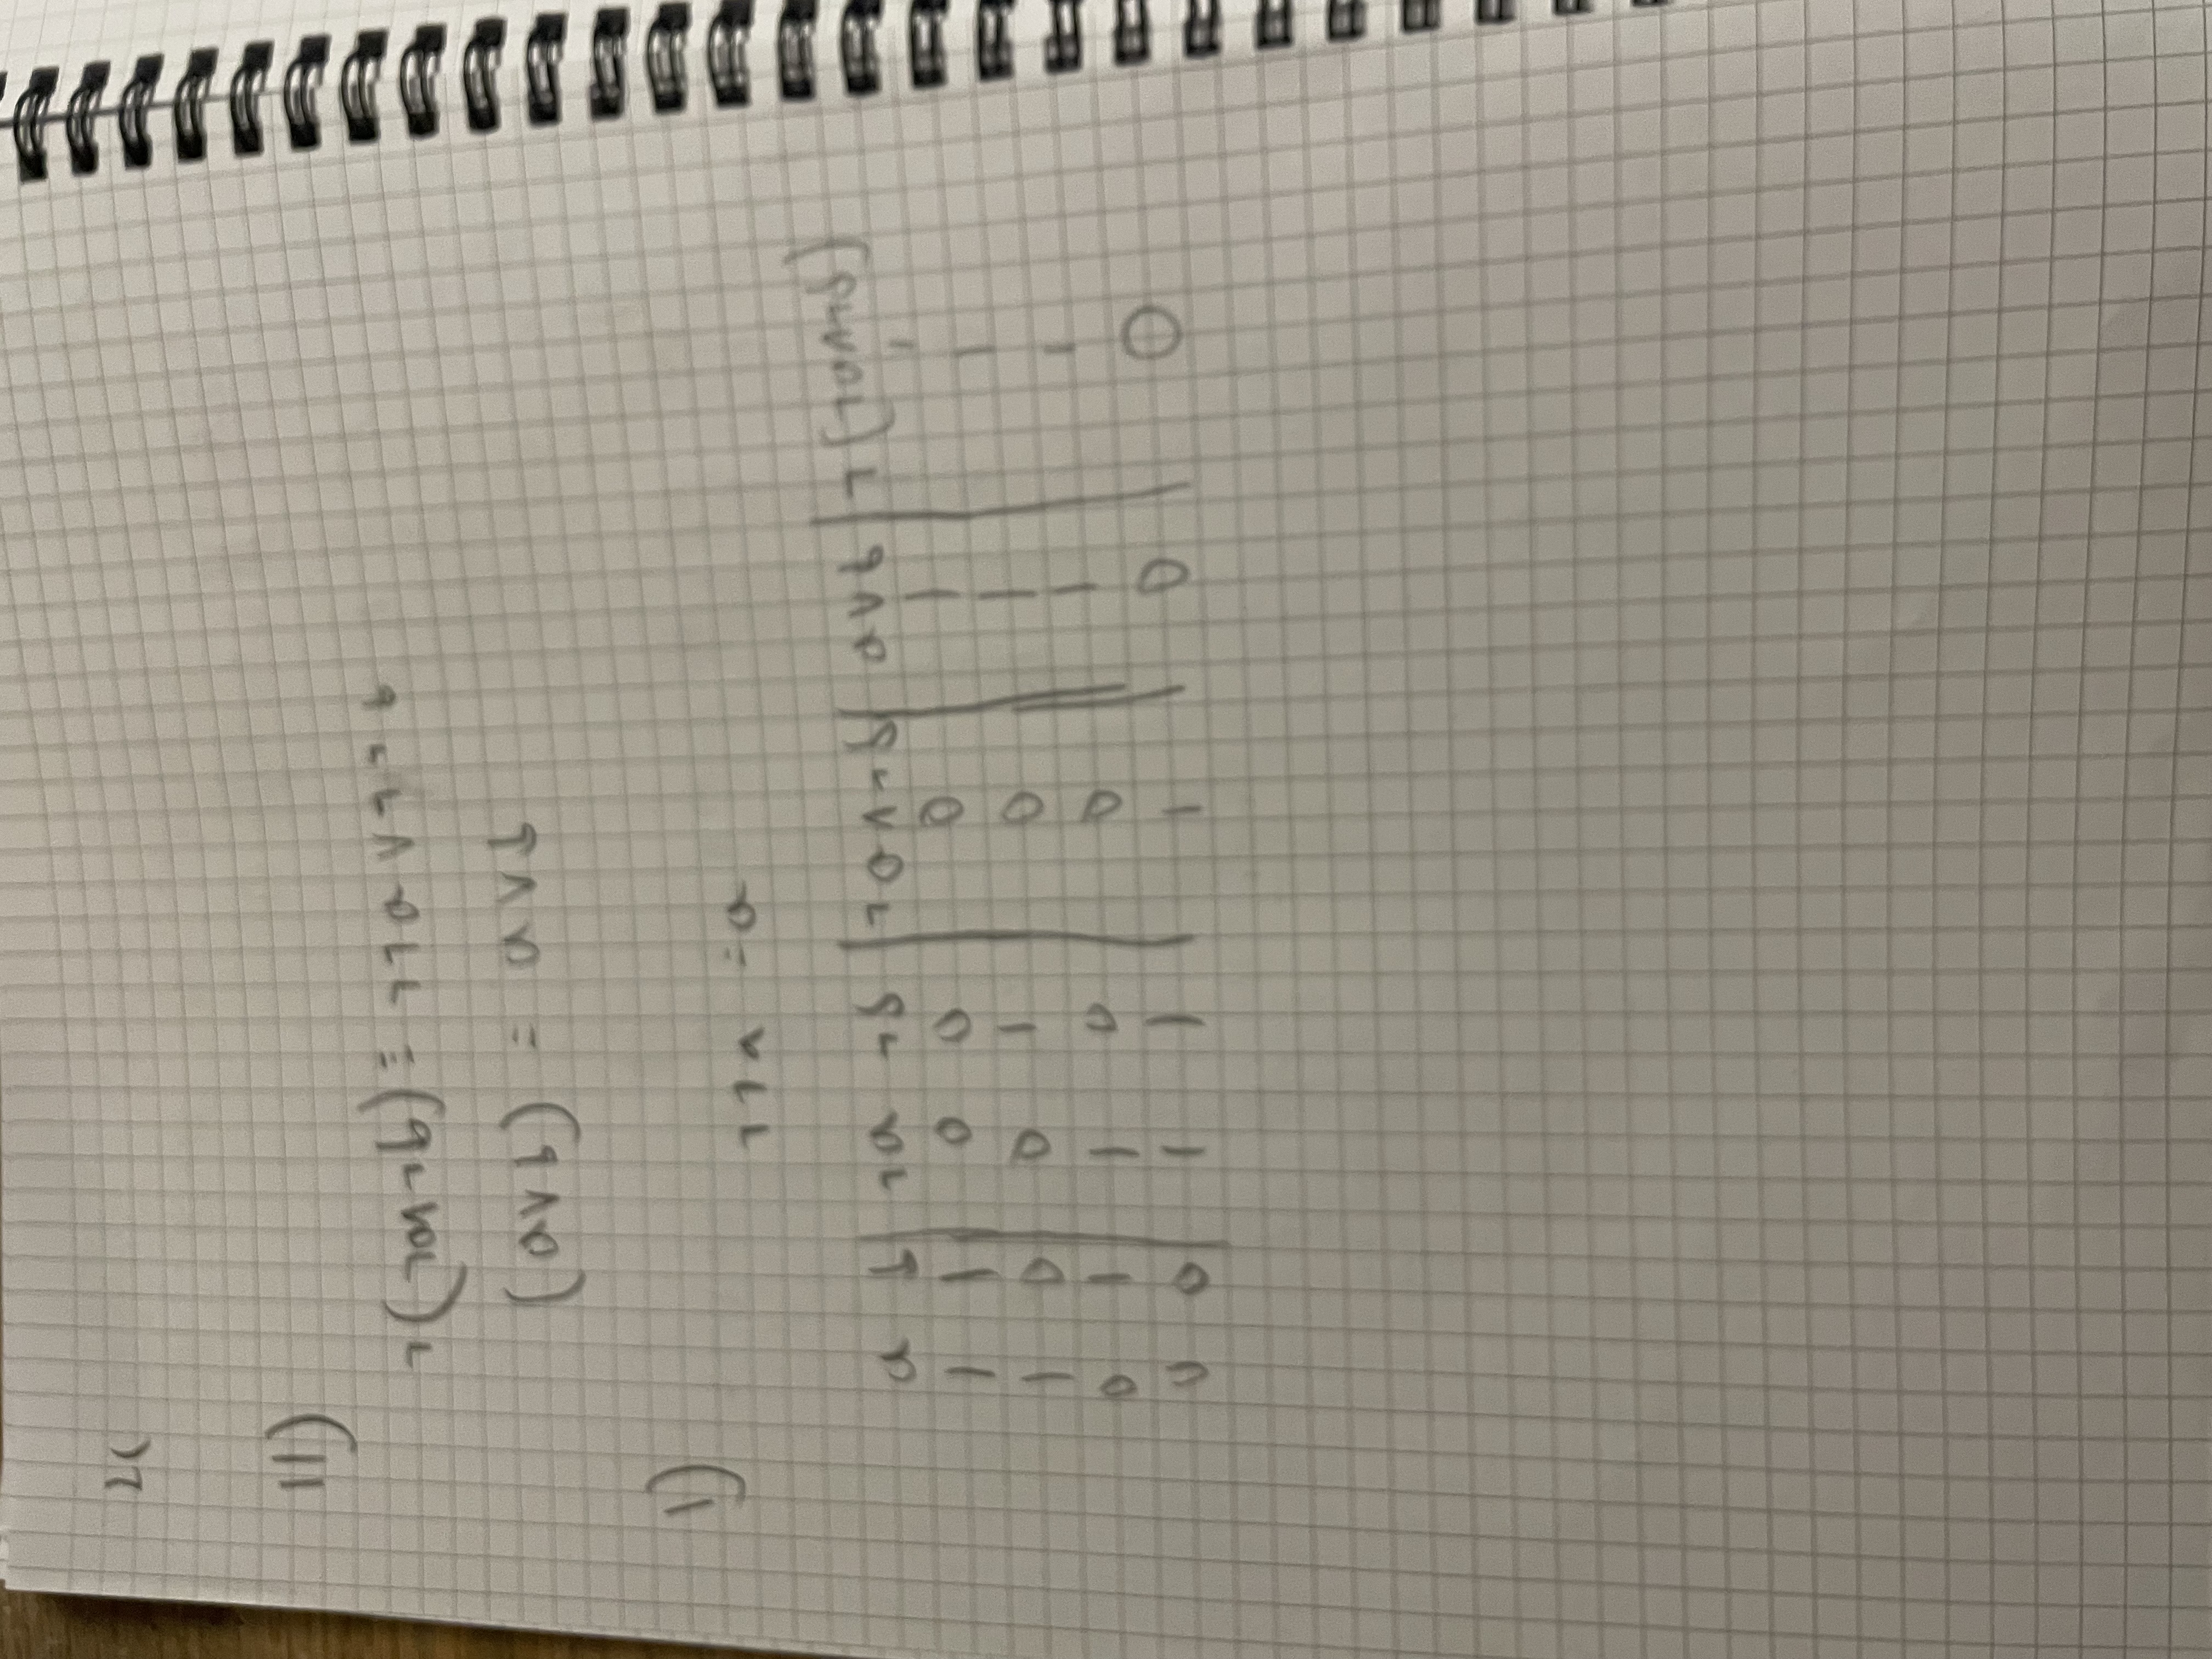 2(
11)
¬(¬a∧¬b) ≡ ¬¬a ∨ ¬¬b
(a∨b) = a∨b
1)
¬¬a = a
a b | ¬a ¬b | ¬a∧¬b | a∨b | ¬(¬a∧¬b)
1 1 | 0 0 | 0 | 1 | 1
1 0 | 0 1 | 0 | 1 | 1
0 1 | 1 0 | 0 | 1 | 1
0 0 | 1 1 | 1 | 0 | 0